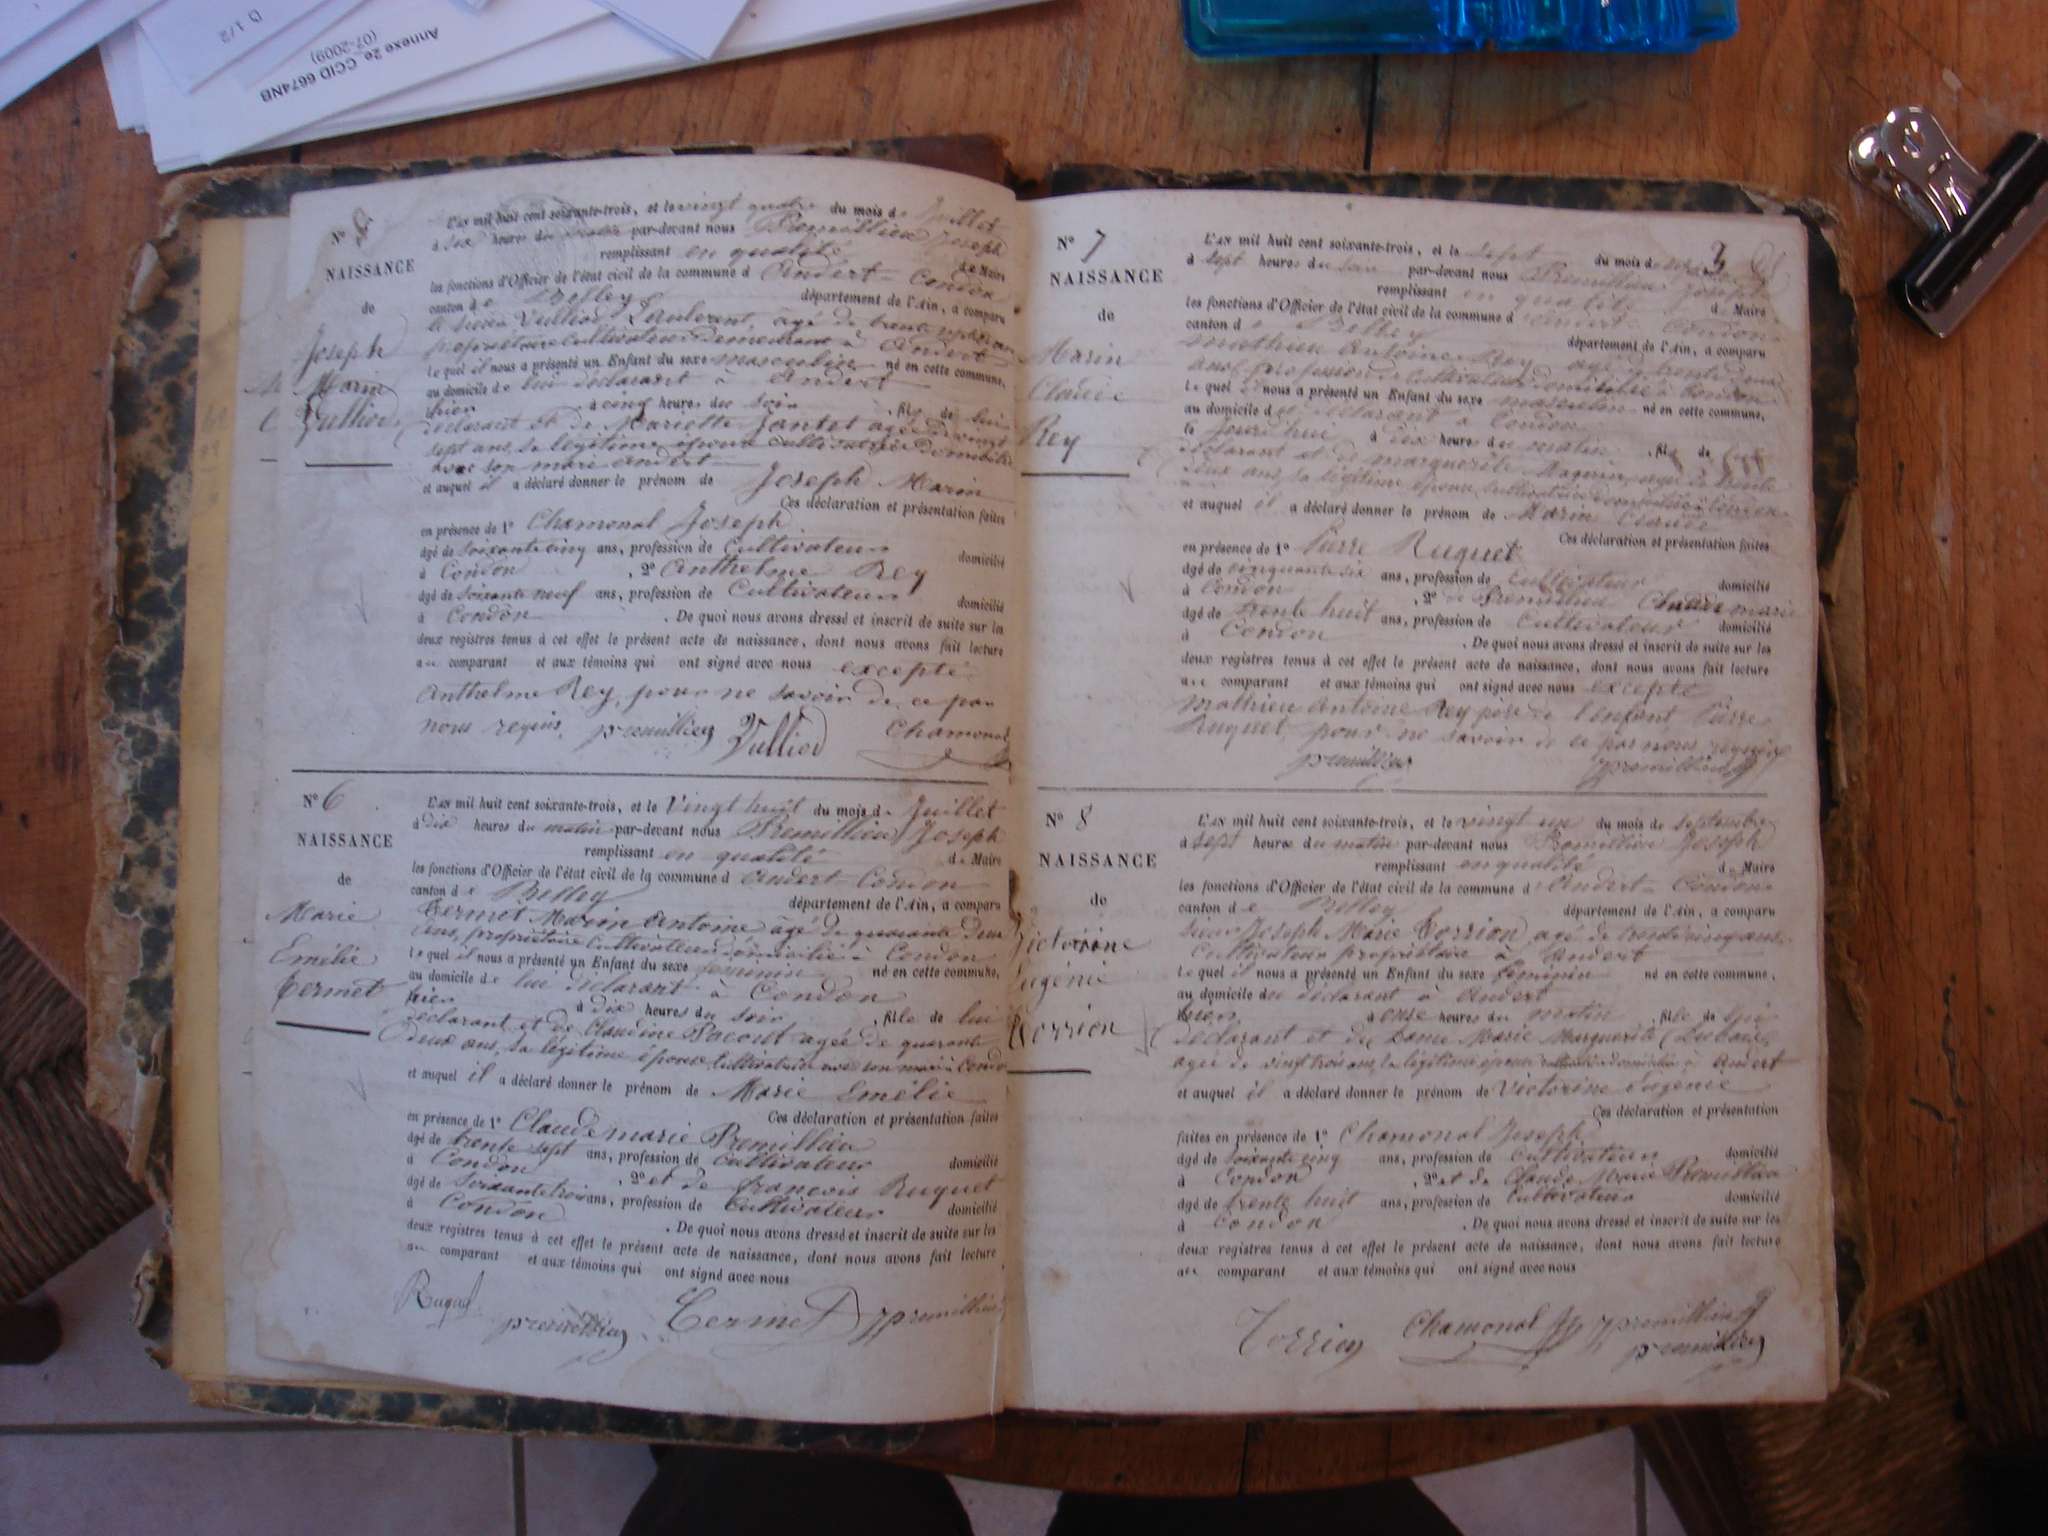 Annexe 2e CCID 6674NB
(07-2009)
D 1/2
N°
NAISSANCE
de
Joseph
Marin
Vulliod
L'AN mil huit cent soixante-trois, et le vingt quatre du mois de Juillet
à six heures du par-devant nous Premillieu Joseph
remplissant en qualité de Maire
les fonctions d'Officier de l'état civil de la commune d Andert-Condon
canton de Belley département de l'Ain, a comparu
le sieur Vulliod Laurent, âgé de trente
propriétaire cultivateur demeurant à Andert
Lequel il nous a présenté un Enfant du sexe masculin né en cette commune,
au domicile de lui déclarant à Andert
hier à cinq heures du soir, fils de lui
déclarant et de Mariette Jantet agée de vingt
sept ans, sa légitime épouse cultivatrice domiciliée
avec son mari Andert
et auquel il a déclaré donner le prénom de Joseph Marin
Ces déclaration et présentation faites
en présence de 1° Chamonal Joseph
âgé de soixante cinq ans, profession de Cultivateur domicilié
à Condon, 2° Anthelme Rey
âgé de soixante neuf ans, profession de Cultivateur domicilié
à Condon. De quoi nous avons dressé et inscrit de suite sur les
deux registres tenus à cet effet le présent acte de naissance, dont nous avons fait lecture
au comparant et aux témoins qui ont signé avec nous excepté
Anthelme Rey, pour ne savoir de ce par
nous requis. premillieu Vulliod Chamonal
N° 6
NAISSANCE
de
Marie
Emélie
Termet
L'AN mil huit cent soixante-trois, et le Vingt huit du mois de Juillet
à dix heures du matin par-devant nous Premillieu Joseph
remplissant en qualité de Maire
les fonctions d'Officier de l'état civil de la commune d Andert-Condon
canton de Belley département de l'Ain, a comparu
Termet Marin Antoine âgé de quarante deux
ans, propriétaire cultivateur domicilié à Condon
Lequel il nous a présenté un Enfant du sexe féminin né en cette commune,
au domicile de lui déclarant à Condon
hier à dix heures du soir, fille de lui
déclarant et de Claudine Pacout agée de quarante
deux ans, sa légitime épouse cultivatrice avec son mari à Condon
et auquel il a déclaré donner le prénom de Marie Emélie
Ces déclaration et présentation faites
en présence de 1° Claude marie Premillieu
âgé de trente sept ans, profession de cultivateur domicilié
à Condon, 2° et de françois Ruquet
âgé de soixante trois ans, profession de Cultivateur domicilié
à Condon. De quoi nous avons dressé et inscrit de suite sur les
deux registres tenus à cet effet le présent acte de naissance, dont nous avons fait lecture
au comparant et aux témoins qui ont signé avec nous
Ruquet premillieu Termet premillieu
3
N° 7
NAISSANCE
de
Marin
Claude
Rey
L'AN mil huit cent soixante-trois, et le sept du mois de
à sept heures du soir par-devant nous Premillieu Joseph
remplissant en qualité de Maire
les fonctions d'Officier de l'état civil de la commune d Andert-Condon
canton de Belley département de l'Ain, a comparu
Mathieu Antoine Rey agé de trente
ans, profession de cultivateur domicilié à Condon
Lequel il nous a présenté un Enfant du sexe masculin né en cette commune,
au domicile de déclarant à Condon
le jourd'hui à dix heures du matin, fils de lui
déclarant et de marguerite Maguin agée de trente
deux ans, sa légitime épouse, cultivatrice
et auquel il a déclaré donner le prénom de Marin Claude
Ces déclaration et présentation faites
en présence de 1° Pierre Ruquet
âgé de cinquante six ans, profession de cultivateur domicilié
à Condon, 2° de Premillieu Claude marie
âgé de trente huit ans, profession de Cultivateur domicilié
à Condon. De quoi nous avons dressé et inscrit de suite sur les
deux registres tenus à cet effet le présent acte de naissance, dont nous avons fait lecture
aux comparant et aux témoins qui ont signé avec nous excepté
Mathieu Antoine Rey père de l'enfant, Pierre
Ruquet, pour ne savoir de ce par nous requis
premillieu premillieu
N° 8
NAISSANCE
de
Victorine
Eugénie
Torrion
L'AN mil huit cent soixante-trois, et le vingt un du mois de septembre
à sept heures du matin par-devant nous Premillieu Joseph
remplissant en qualité de Maire
les fonctions d'Officier de l'état civil de la commune d Andert-Condon
canton de Belley département de l'Ain, a comparu
sieur Joseph Marie Torrion agé de trente cinq ans,
cultivateur propriétaire à Andert
Lequel il nous a présenté un Enfant du sexe féminin né en cette commune,
au domicile du déclarant à Andert
hier à onze heures du matin, fille de
déclarant et de Dame Marie Marguerite Dubois
agée de vingt trois ans, sa légitime épouse domiciliée à Andert
et auquel il a déclaré donner le prénom de Victorine Eugénie
Ces déclaration et présentation
faites en présence de 1° Chamonal Joseph
âgé de soixante cinq ans, profession de cultivateur domicilié
à Condon, 2° et de Claude Marie Premillieu
âgé de trente huit ans, profession de Cultivateur domicilié
à Condon. De quoi nous avons dressé et inscrit de suite sur les
deux registres tenus à cet effet le présent acte de naissance, dont nous avons fait lecture
aux comparant et aux témoins qui ont signé avec nous
Torrion Chamonal premillieu premillieu